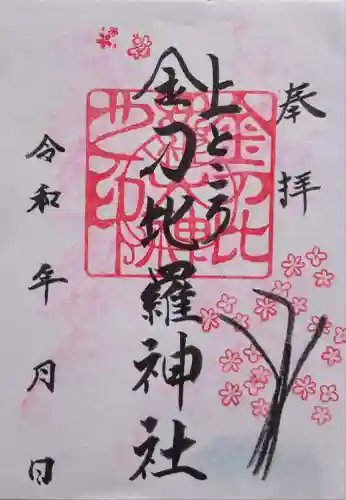 奉拝
上ところ
金刀比羅神社
令和 年 月 日